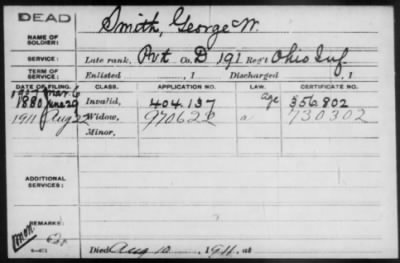 DEAD
NAME OF SOLDIER: Smith, George W.
SERVICE: Late rank, Pvt Co. D 191 Reg't Ohio Inf.
TERM OF SERVICE: Enlisted , 1 Discharged , 1
DATE OF FILING. CLASS. APPLICATION NO. LAW. CERTIFICATE NO.
Mar 6
1880 June 29 Invalid, 404.137 Age 356.802
1911 Aug 22 Widow, 970622 a 730302
Minor,
ADDITIONAL SERVICES:
REMARKS:
Died Aug 10 , 1911, at